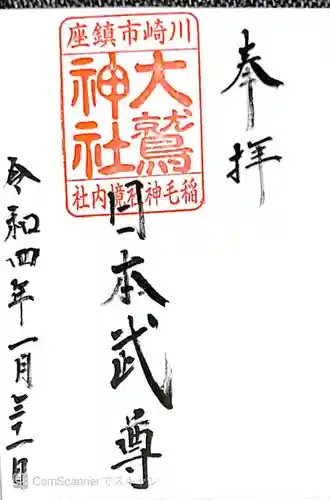 奉拝
川崎市鎮座
大鷲神社
稲毛神社境内社
日本武尊
令和四年一月三十一日
CamScannerでスキャン